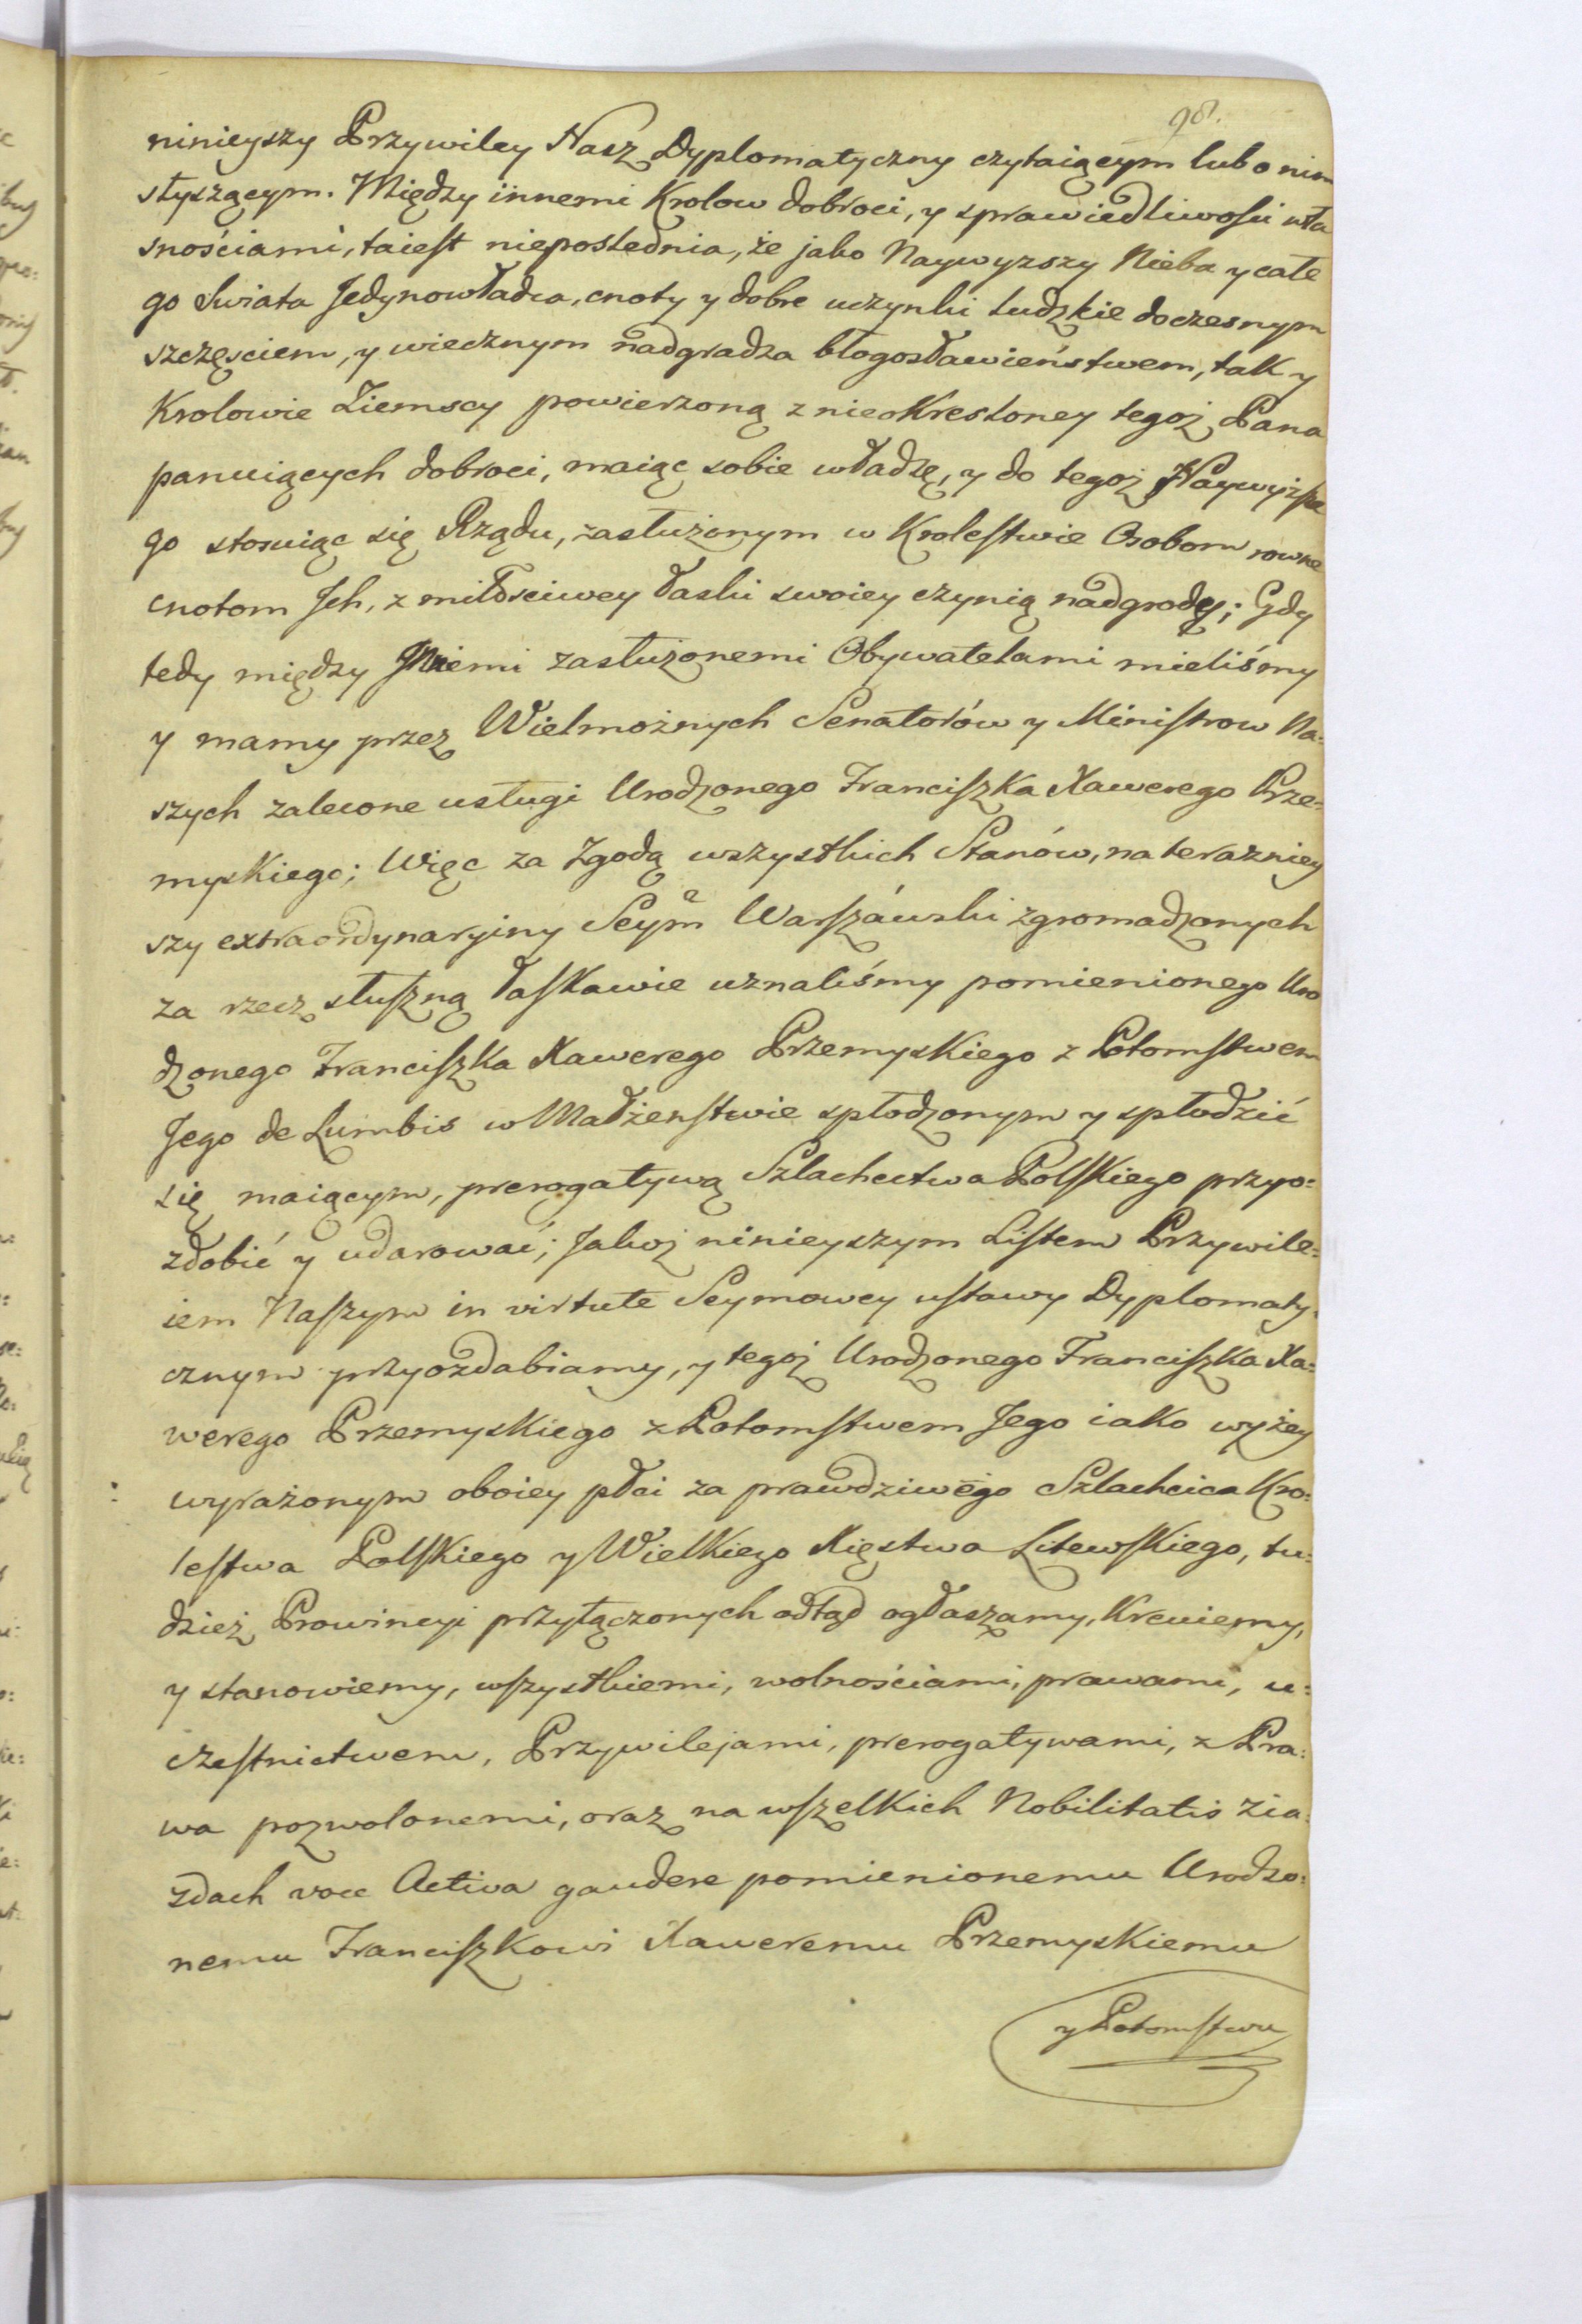 98.
ninieyszy Przywiley Nasz Dyplomatyczny czytaiącym lub o nim
słyszącym. Między innemi Krolow dobroci, y sprawiedliwości wła
snościami, ta iest nieposlednia, że jako Naywyzszy Nieba y całe
go Swiata Jedynowładca, cnoty y dobre uczynki ludzkie doczesnym
szczęsciem, y wiecznym nadgradza błogosławieństwem, tak y
Krolowie Ziemscy powierzoną z nieokresloney tegoż Pana
panuiących dobroci, maiąc sobie władzę, y do tegoż Naywyższe
go stosuiąc się Rządu, zasłużonym w Krolestwie Osobom rowne
cnotom Jch, z miłościwey łaski swoiey czynią nadgrody; Gdy
tedy między Jnnemi zasłużonemi Obywatelami mieliśmy
y mamy przez Wielmożnych Senatorów y Ministrow Na:
szych zalecone usługi Urodzonego Franciszka Xawerego Prze:
myskiego; Więc za Zgodą wszystkich Stanów, na terazniey
szy extraordynaryiny Seym Warszáwski zgromadzonych
za rzecz słuszną łaskawie uznaliśmy pomienionego Uro
dzonego Franciszka Xawerego Przemyskiego z Potomstwem
Jego de Lumbis w Małżenstwie spłodzonym y spłodzić
się maiącym, prerogatywą Szlachectwa Polskiego przyo:
zdobić y udarować; Jakoż ninieyszym Listem Przywile:
iem Naszym in virtute Seymowey ustawy Dyplomaty:
cznym przyozdabiamy, y tegoż Urodzonego Franciszka Xa:
werego Przemyskiego z Potomstwem Jego iako wyżey
wyrażonym oboiey płci za prawdziwego Szlachcica Kro:
lestwa Polskiego y Wielkiego Xięstwa Litewskiego, tu:
dzież Prowincyi przyłączonych odtąd ogłaszamy, Kreuiemy,
y stanowiemy, wszystkiemi, wolnościami, prawami, u:
czestnictwem, Przywilejami, prerogatywami, z Pra:
wa pozwolonemi, oraz na wszelkich Nobilitatis zia:
zdach voce Activa gaudere pomienionemu Urodzo:
nemu Franciszkowi Xaweremu Przemyskiemu
y Potomstwu